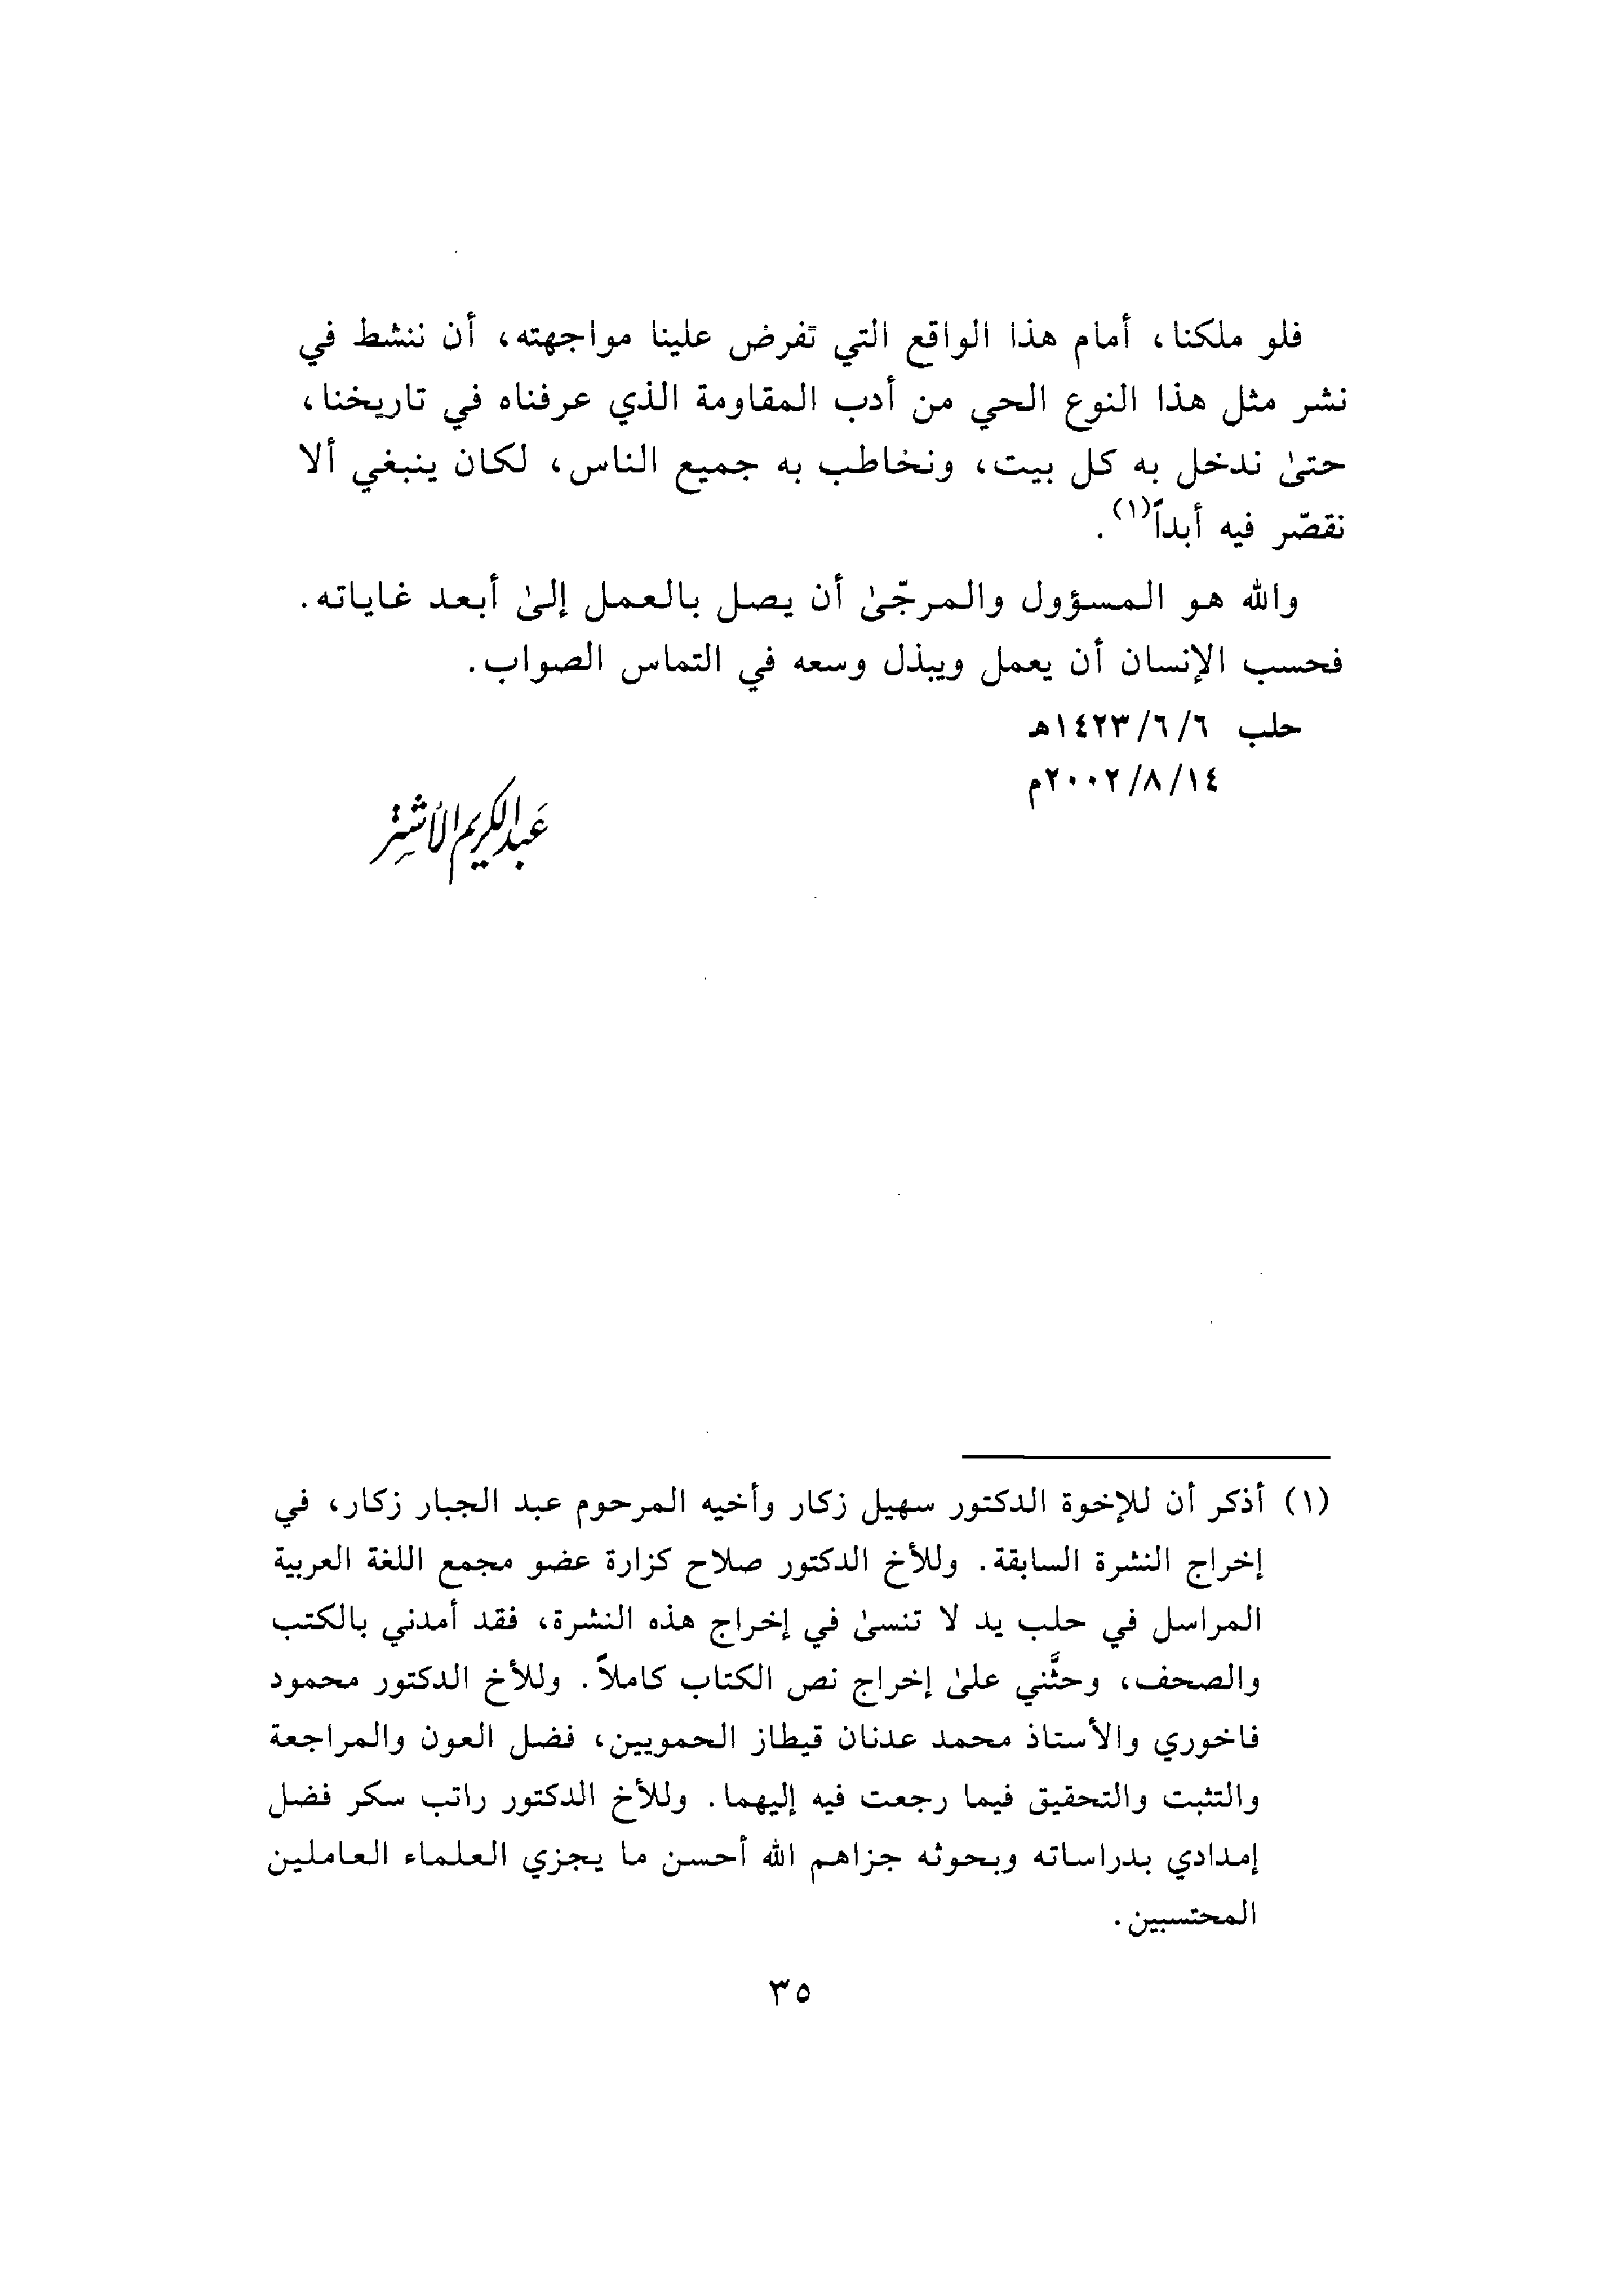 فلو ملكنا، أمام هذا الواقع التي تفرض علينا مواجهته، أن ننشط في
نشر مثل هذا النوع الحي من أدب المقاومة الذي عرفناه في تاريخنا،
حتىٰ ندخل به كل بيت، ونخاطب به جميع الناس، لكان ينبغي ألا
نقصّر فيه أبداً(١).
والله هو المسؤول والمرجّىٰ أن يصل بالعمل إلىٰ أبعد غاياته.
فحسب الإنسان أن يعمل ويبذل وسعه في التماس الصواب.
حلب ٦/ ٦/ ١٤٢٣هـ
١٤/ ٨/ ٢٠٠٢م
عبد الكريم الأشتر
(١) أذكر أن للإخوة الدكتور سهيل زكار وأخيه المرحوم عبد الجبار زكار، في
إخراج النشرة السابقة. وللأخ الدكتور صلاح كزارة عضو مجمع اللغة العربية
المراسل في حلب يد لا تنسىٰ في إخراج هذه النشرة، فقد أمدني بالكتب
والصحف، وحثَّني علىٰ إخراج نص الكتاب كاملاً. وللأخ الدكتور محمود
فاخوري والأستاذ محمد عدنان قيطاز الحمويين، فضل العون والمراجعة
والتثبت والتحقيق فيما رجعت فيه إليهما. وللأخ الدكتور راتب سكر فضل
إمدادي بدراساته وبحوثه جزاهم الله أحسن ما يجزي العلماء العاملين
المحتسبين.
٣٥